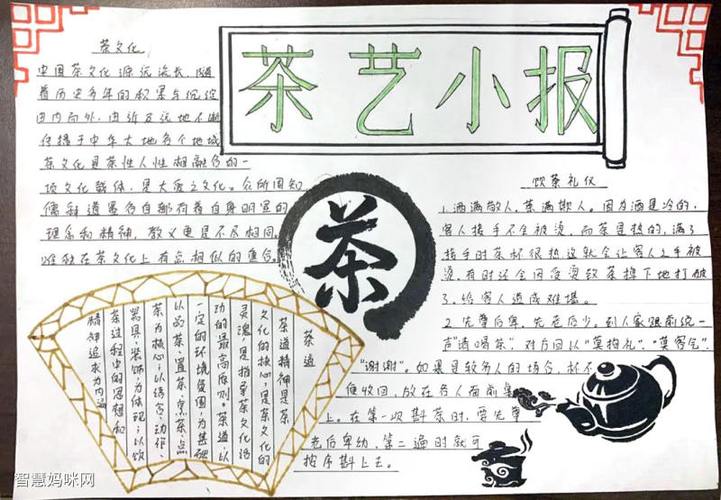 茶艺小报
茶文化
中国茶文化源远流长,随
着历史多年的积累与沉淀
由内而外,由近及远地不断
传播于中华大地各个地域
茶文化是茶性人性相融合的一
项文化载体,是大爱之文化。众所周知
儒释道墨各自都有着自身明宣的
理念和精神,教义更是不尽相同,
唯独在茶文化上有点相似的集合。
茶
饮茶礼仪
1.酒满敬人,茶满欺人。因为酒是冷的,
客人接手不会被烫,而茶是热的,满了
接手时茶杯很热这就会让客人之手被
烫,有时还会因受烫致茶掉下地打破
了,给客人造成难堪。
2.先尊后卑,先老后少。到人家跟前说一
声"请喝茶"对方回以"莫拘礼""莫客气"
"谢谢"。如果是较多人的场合,杯不
便收回,放在各人面前桌
上。在第一次斟茶时,要先尊
老后卑幼,第二遍时就可
按序斟上去。
茶道
茶道精神是茶
文化的核心,是茶文化的
灵魂,是指导茶文化活
动的最高原则。茶道以
一定的环境氛围为基础
以品茶、置茶、烹茶、点
茶为核心,以语言、动作、
器具、装饰为体现,以饮
茶过程中的思想和
精神追求为内涵
智慧妈咪网